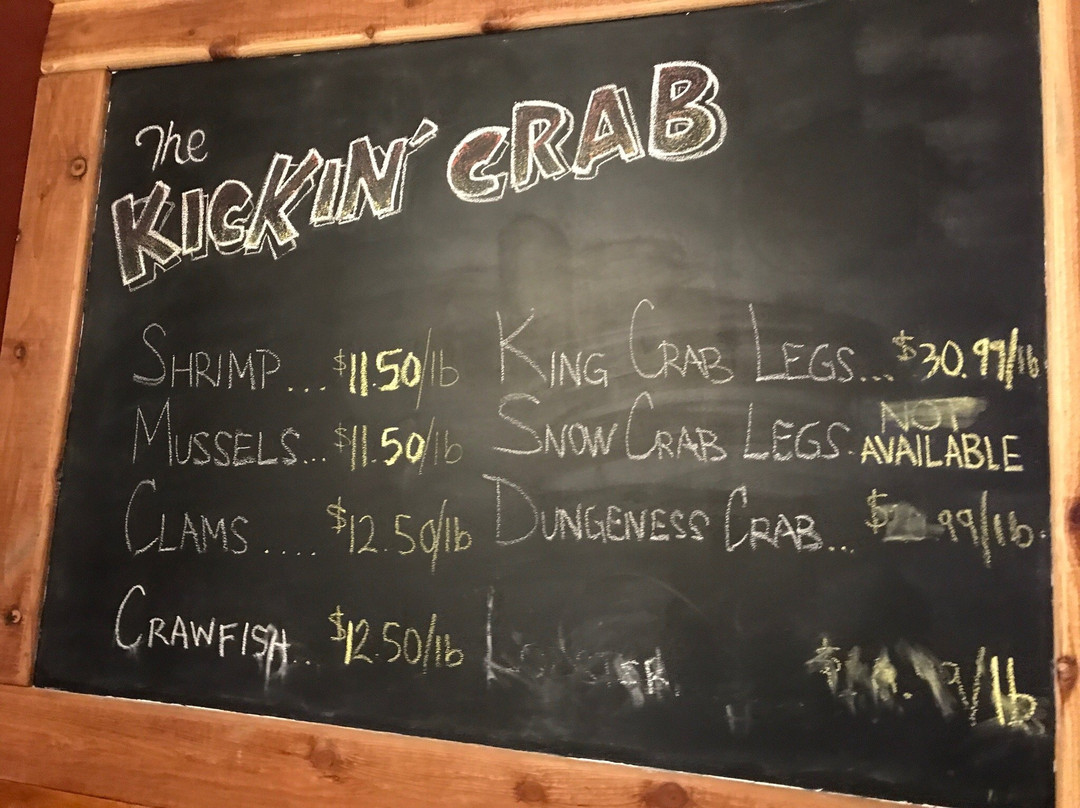 The
KICKIN' CRAB
SHRIMP... $11.50/lb
MUSSELS... $11.50/lb
CLAMS..... $12.50/lb
CRAWFISH... $12.50/lb
KING CRAB LEGS... $30.99/lb
SNOW CRAB LEGS. NOT AVAILABLE
DUNGENESS CRAB... $ .99/lb
/lb